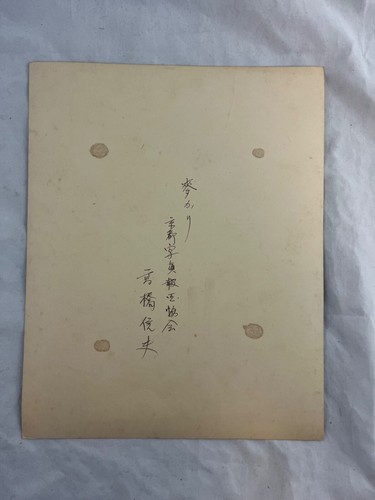 麦かり
京都写真報国協会
高橋俊夫